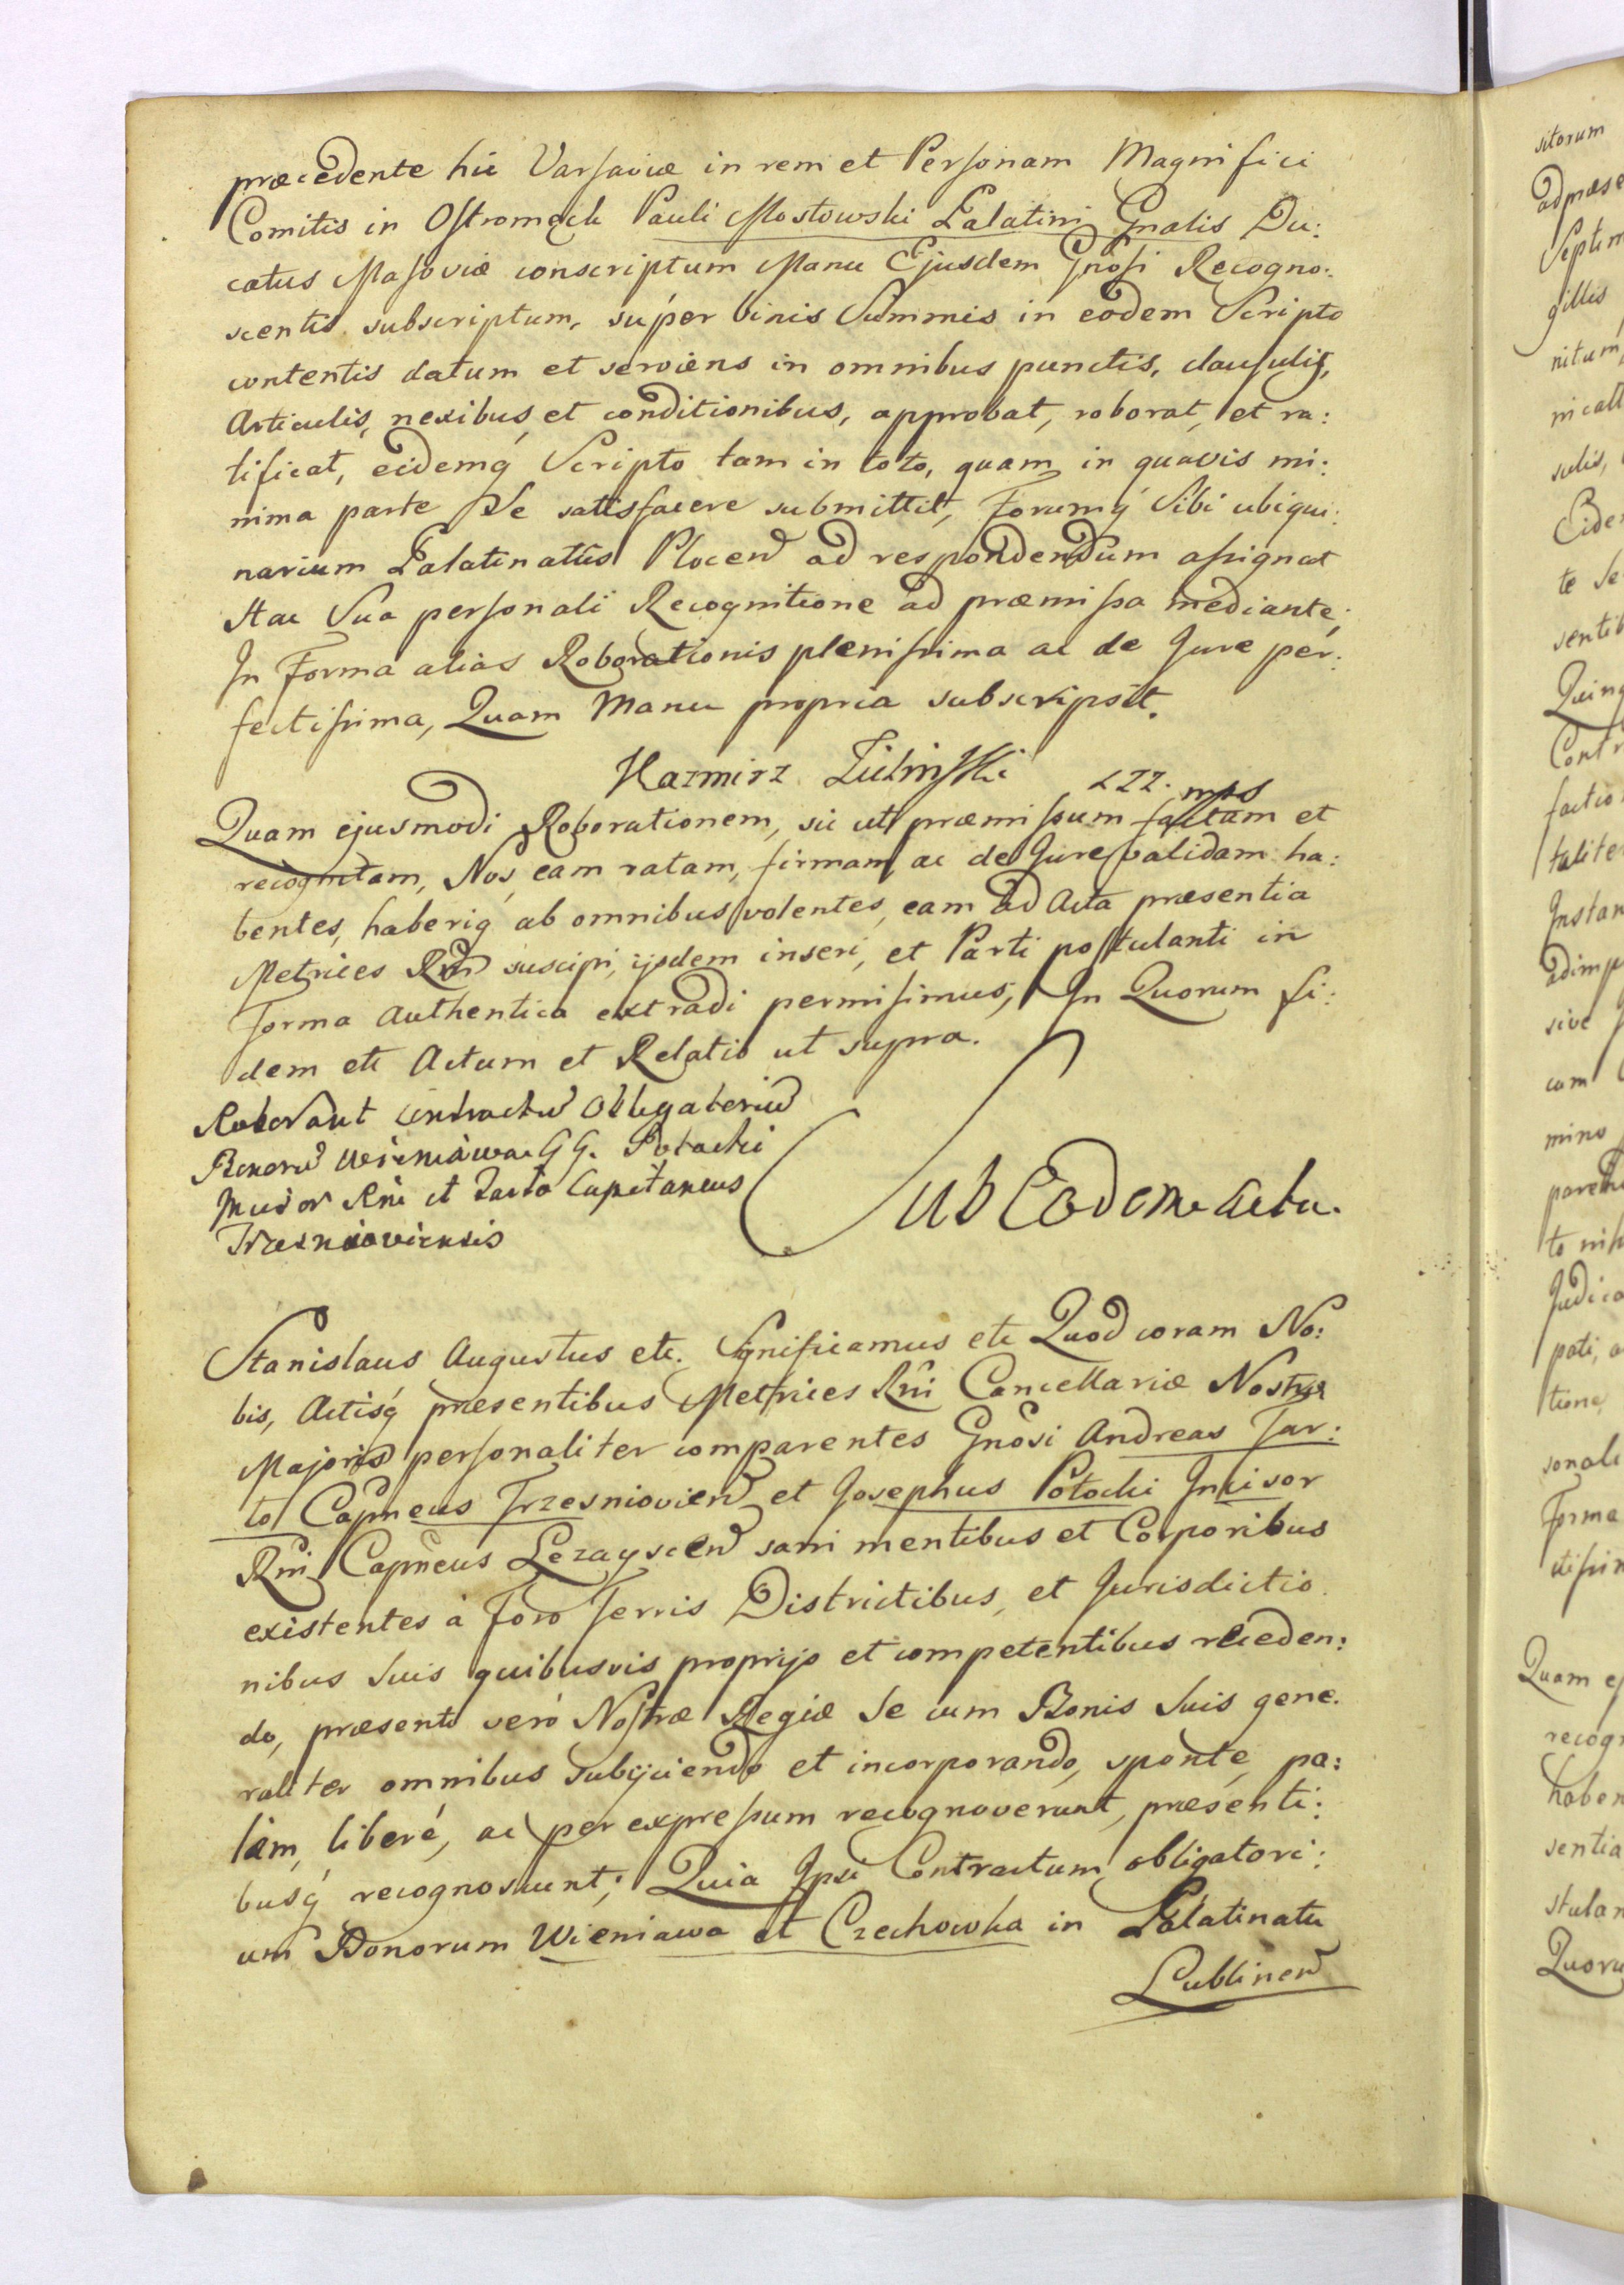 præcedente hic Varsaviæ in rem et Personam Magnifici
Comitis in Ostromeck Pauli Mostowski Palatini Gnalis Du:
catus Masoviæ conscriptum Manu Ejusdem Gnosi Recogno:
scentis subscriptum, super binis Summis in eodem Scripto
contentis datum et serviens in omnibus punctis, clausulis,
Articulis, nexibus et conditionibus, approbat, roborat, et ra:
tificat, eidemq́ Scripto tam in toto, quam in quavis mi:
nima parte Se satisfacere submittit, Forumq́ Sibi ubiqui:
narium Palatinatûs Plocen ad respondendum assignat
Hac Sua personali Recognitione ad præmissa mediante;
In Forma alias Roborationis plenissima ac de Jure per:
fectissima, Quam Manu propria subscripsit.
Kazmirz Zieliński mps
Quam ejusmodi Roborationem, sic uti præmissum factam et
recognitam, Nos eam ratam, firmam ac de Jure validam ha:
bentes, haberiq́ ab omnibus volentes, eam ad Acta præsentia
Metrices Rni suscipi, ijsdem inseri, et Parti postulanti in
forma Authentica extradi permisimus, In Quorum fi:
dem etc Actum et Relatio ut supra.
Roborant Contractum Obligatorium
Bonorum Wieniawa GG. Potocki
Incisor Rni et Tarło Capitaneus
Trzesnioviensis
Sub Eodem Actu.
Stanislaus Augustus etc. Significamus etc Quod coram No:
bis, Actisq́ præsentibus Metrices Rni Cancellariæ Nostræ
Majoris personaliter comparentes Gnosi Andreas Tar:
ło Capneus Trzesniovien et Josephus Potocki Incisor
Rni Capneus Lezayscen sani mentibus et Corporibus
existentes à Foro Terris Districtibus, et Jurisdictio
nibus Suis quibusvis proprijs et competentibus receden:
do, præsenti verò Nostræ Regiæ Se cum Bonis Suis gene.
raliter omnibus Subijciendo et incorporando, sponte, pa:
lám, liberé, ac per expressum recognoverunt, præsenti:
busq́ recognoscunt; Quia Ipsi Contractum obligatori:
um Bonorum Wieniawa et Czechowka in Palatinatu
Lublinen